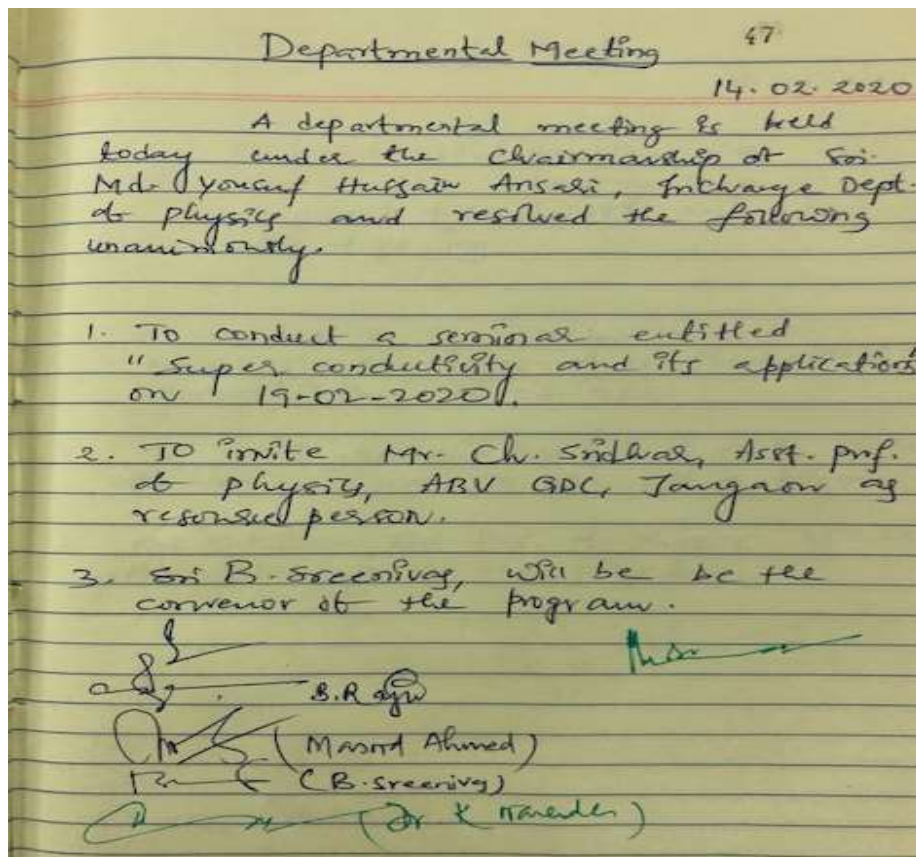 47
Departmental Meeting
14.02.2020
A departmental meeting is held
today under the Chairmanship of Sri.
Md. Yousuf Hussain Ansari, Incharge Dept.
of physics and resolved the following
unanimously.
1. To conduct a seminar entitled
"Super conductivity and its applications
on 19-02-2020.
2. To invite Mr. Ch. Sridhar, Asst. prof.
of physics, ABV GDC, Jangaon as
person.
3. Sri B. Sreenivas, will be be the
convenor of the program.
B. Raju
(Masood Ahmed)
(B. Sreenivas)
(Dr K Narender)